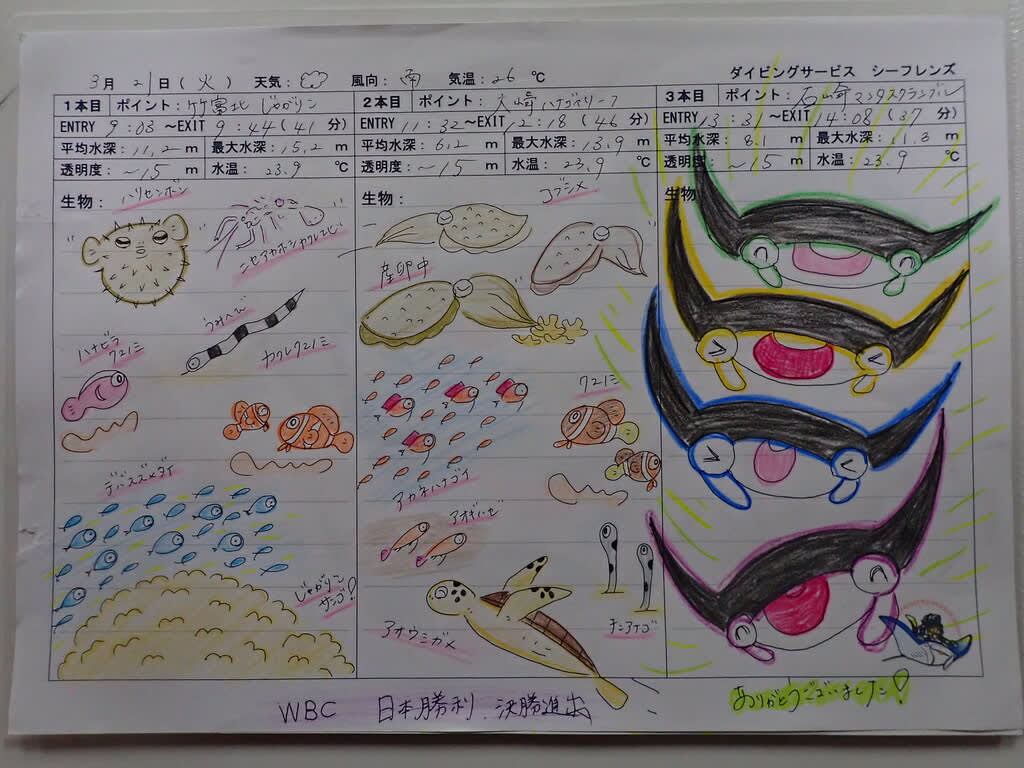 3月 21日(火) 天気: 風向:南 気温:26℃
ダイビングサービス シーフレンズ
1本目 ポイント:竹富北 じゃがリン
ENTRY 9:03〜EXIT 9:44(41分)
平均水深:11,2m 最大水深:15,2m
透明度:〜15m 水温:23.9℃
生物:
ハリセンボン
ニセアカホシカクレエビ
うみへび
ハナビラクマノミ
カクレクマノミ
デバスズメダイ
じゃがリンサンゴ!
2本目 ポイント:大崎ハナゴイリーフ
ENTRY 11:32〜EXIT 12:18(46分)
平均水深:6,2m 最大水深:13.9m
透明度:〜15m 水温:23.9℃
生物:
コブシメ
産卵中
クマノミ
アカネハナゴイ
アオギハゼ
アオウミガメ
チンアナゴ
3本目 ポイント:石崎マンタスクランブル
ENTRY 13:31〜EXIT 14:08(37分)
平均水深:8.1m 最大水深:11.3m
透明度:〜15m 水温:23.9℃
生物
WBC 日本勝利 決勝進出
ありがとうございました!